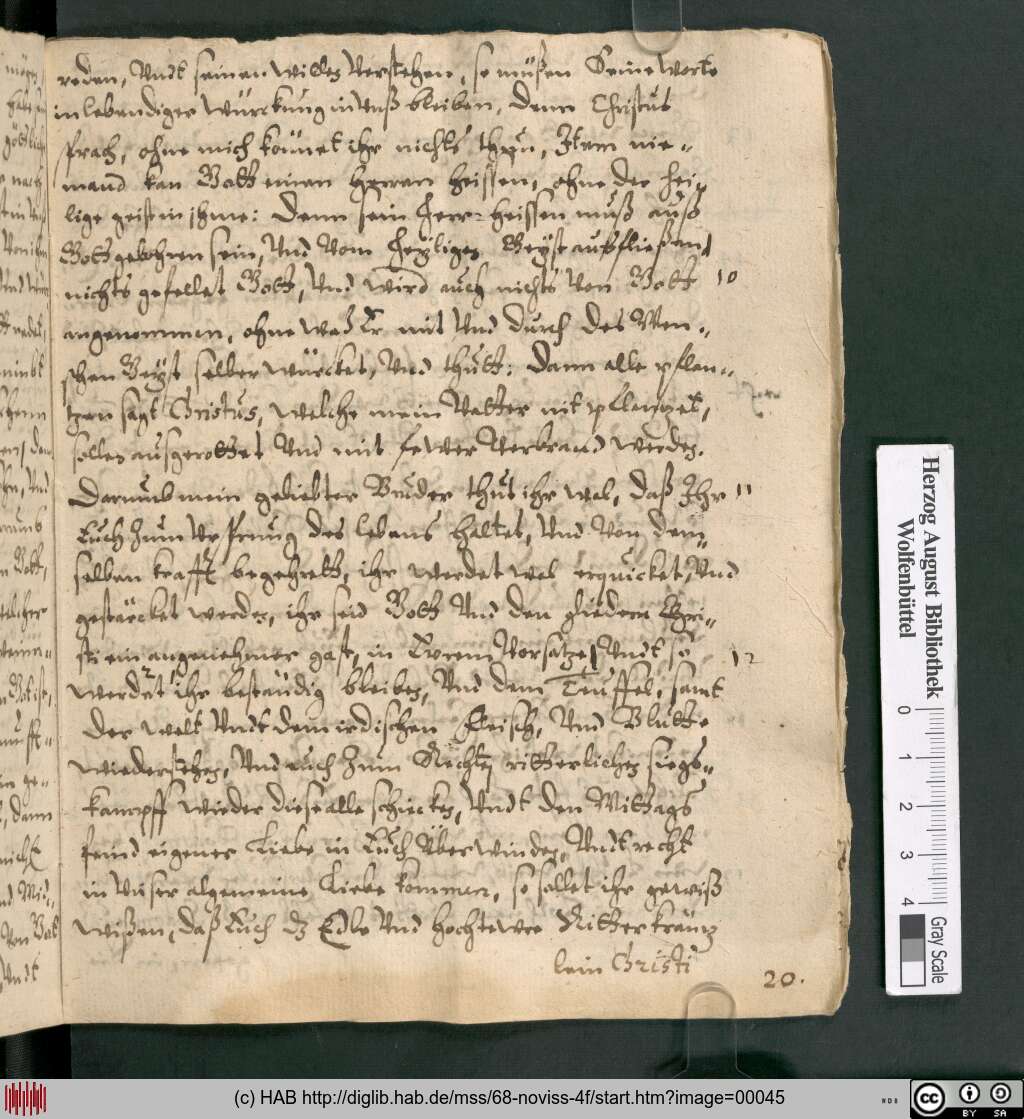 reden, Vndt seinen willen Verstehen, so müßen Seine worte
in lebendiger würckung in Vnß bleiben, denn Christus
sprach, ohne mich könnet ihr nichts thun, Item nie-
mand kan Gott einen herren heissen, ohne der hei-
lige geist in ihme: denn sein Herr-heissen muß auß
Gott gebohren sein, Vnd vom Heyligen Geyst außfließen
nichts gefellet Gott, Vnd wird auch nichts Von Gott 10
angenommen, ohne waß Er mit Vnd durch des Men-
schen Geyst selber würcket, Vnd thutt: Dann alle pflan-
tzen sagt Christus, welche mein Vatter nit pflantzet,
sollen ausgerottet Vnd mit fewer Verbrand werden.
Darumb mein geliebter Bruder thut ihr wol, daß Ihr 11
Euch zum Vrsprung des lebens haltet, Vnd Von dem-
selben krafft begehrett, ihr werdet wol erquicket, Vnd
gestärcket werden, ihr seid Gott Vnd den gliedern Chri-
sti ein angenehmer gast, in Ewrem Vorsatze, Vndt so 12
werdet ihr beständig bleiben, Vnd dem Teuffel, samt
der welt Vndt dem irdischen Fleisch, Vnd Blutte
wiederstehen, Vnd euch zum Rechten ritterlichen siegs-
kampff wieder diese alle schicken, Vndt den Mittags
feind eigener Liebe in Euch Vberwinden, Vndt recht
in Vnser algemeine Liebe kommen, so sollet ihr gewiß
wißen, daß Euch dz Edle Vnd hochtewre Ritterkräntz
lein Christi
20.
Herzog August Bibliothek
Wolfenbüttel
0 1 2 3 4
Gray Scale
(c) HAB http://diglib.hab.de/mss/68-noviss-4f/start.htm?image=00045
WDB
cc BY SA